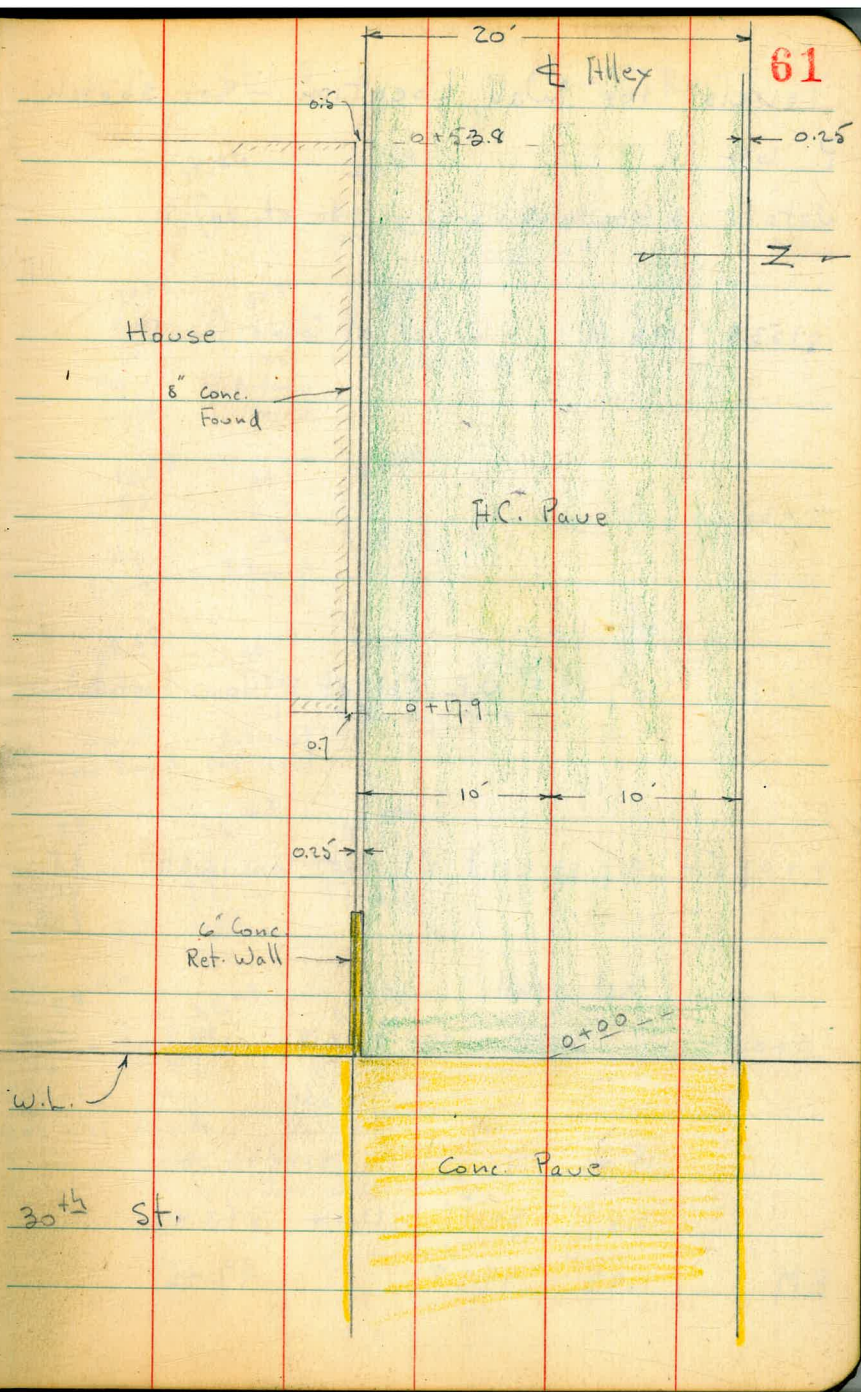 20'
61
℄ Alley
0.5
0+53.8
0.25
Z
House
8" Conc.
Found
A.C. Pave
0+17.9
0.7
10' 10'
0.25
6" Conc.
Ret. Wall
0+00
W.L.
Conc. Pave
30th St.